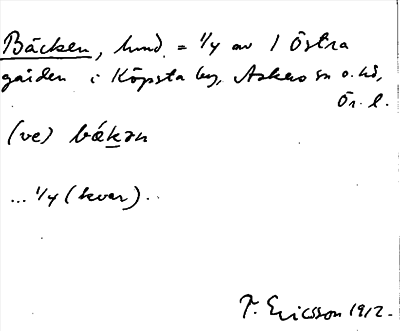 Bäcken, hmd. = 1/4 av 1 Östra
gården i Köpsta by, Askers sn o. hd,
Ör. l.
(ve) bäkɜn
... 1/4 (kvar)..
T. Ericsson 1912.